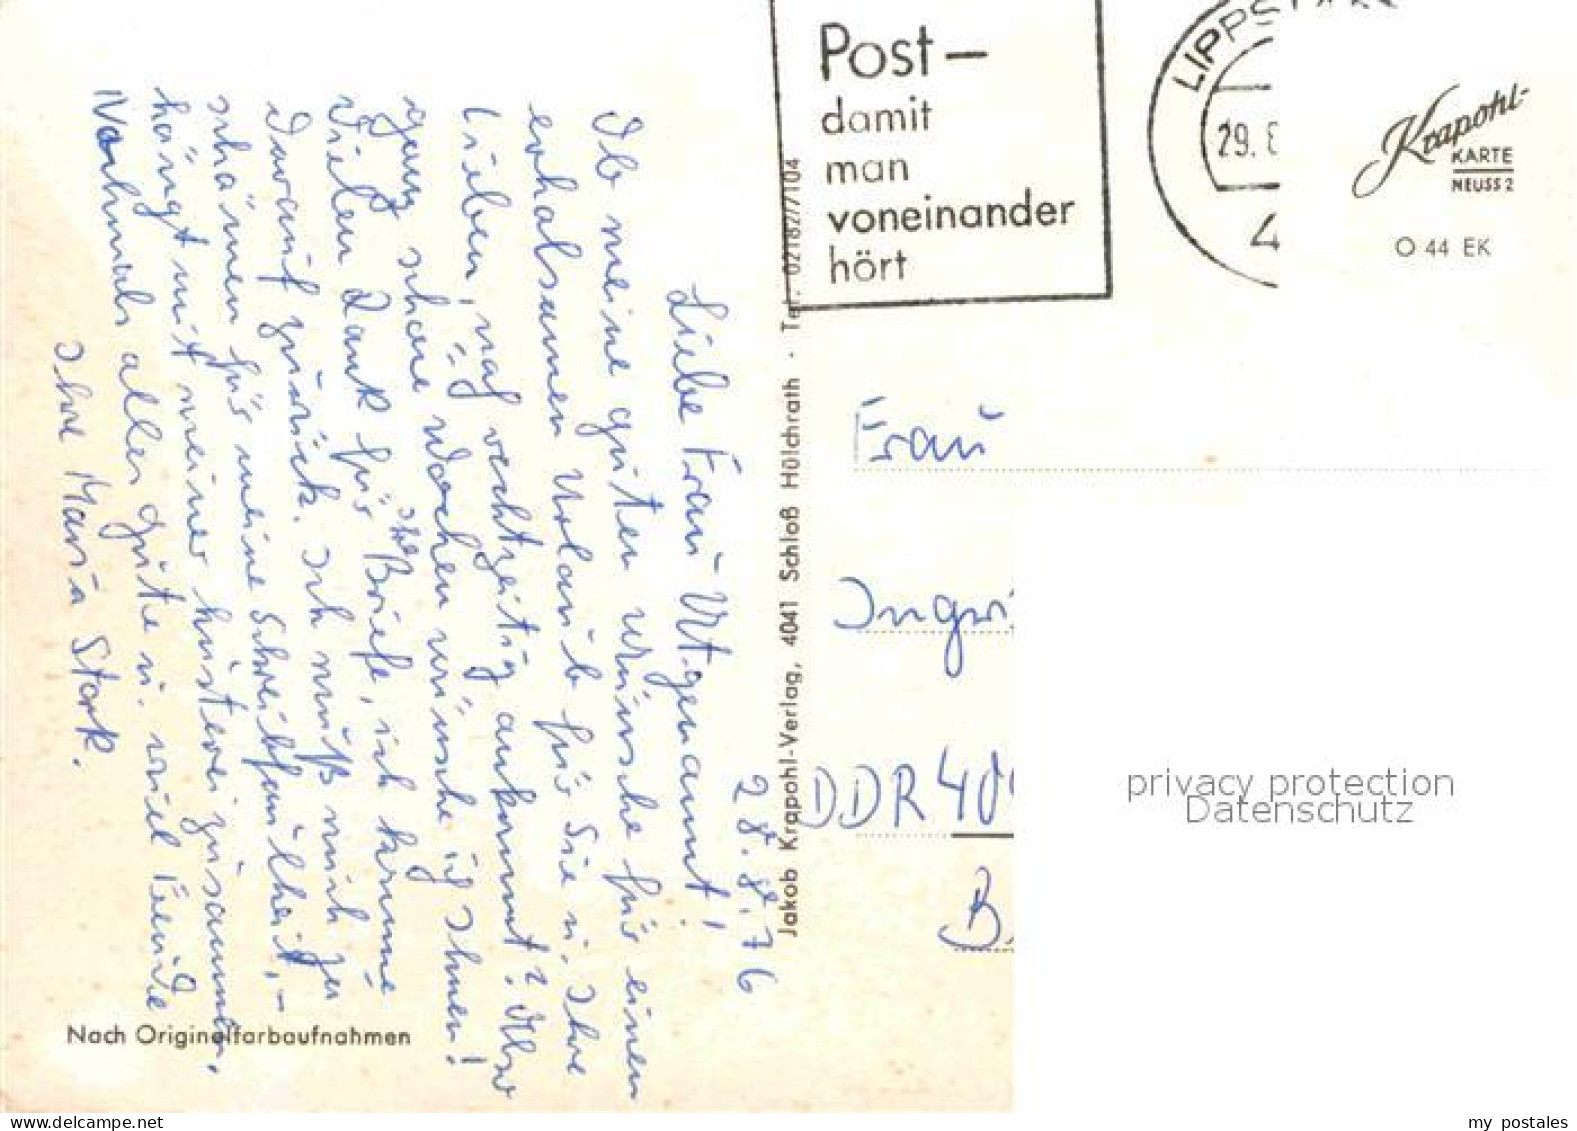 28.8.76
Liebe Frau Utgenannt!
Ob meine guten Wünsche für einen
erholsamen Urlaub für Sie u. Ihre
Lieben, noch rechtzeitig ankommt? Also
ganz schöne Wochen wünsche ich Ihnen!
Vielen Dank für Ihre Briefe, ich komme
darauf zurück. Ich muß mich zu
schämen für meine Schreibfaulheit, –
hängt mit meiner Husterei zusammen.
Nochmals alles gute u. viel Freude
Ihre Maria Stork.
Nach Originalfarbaufnahmen
Jakob Krapohl-Verlag, 4041 Schloß Hülchrath · Tel. 02182/7104
Post –
damit
man
voneinander
hört
LIPPSTADT
29. 8
4
Krapohl-
KARTE
NEUSS 2
O 44 EK
Frau
Ingri
DDR 40
B
privacy protection
Datenschutz
delcampe.net
my postales